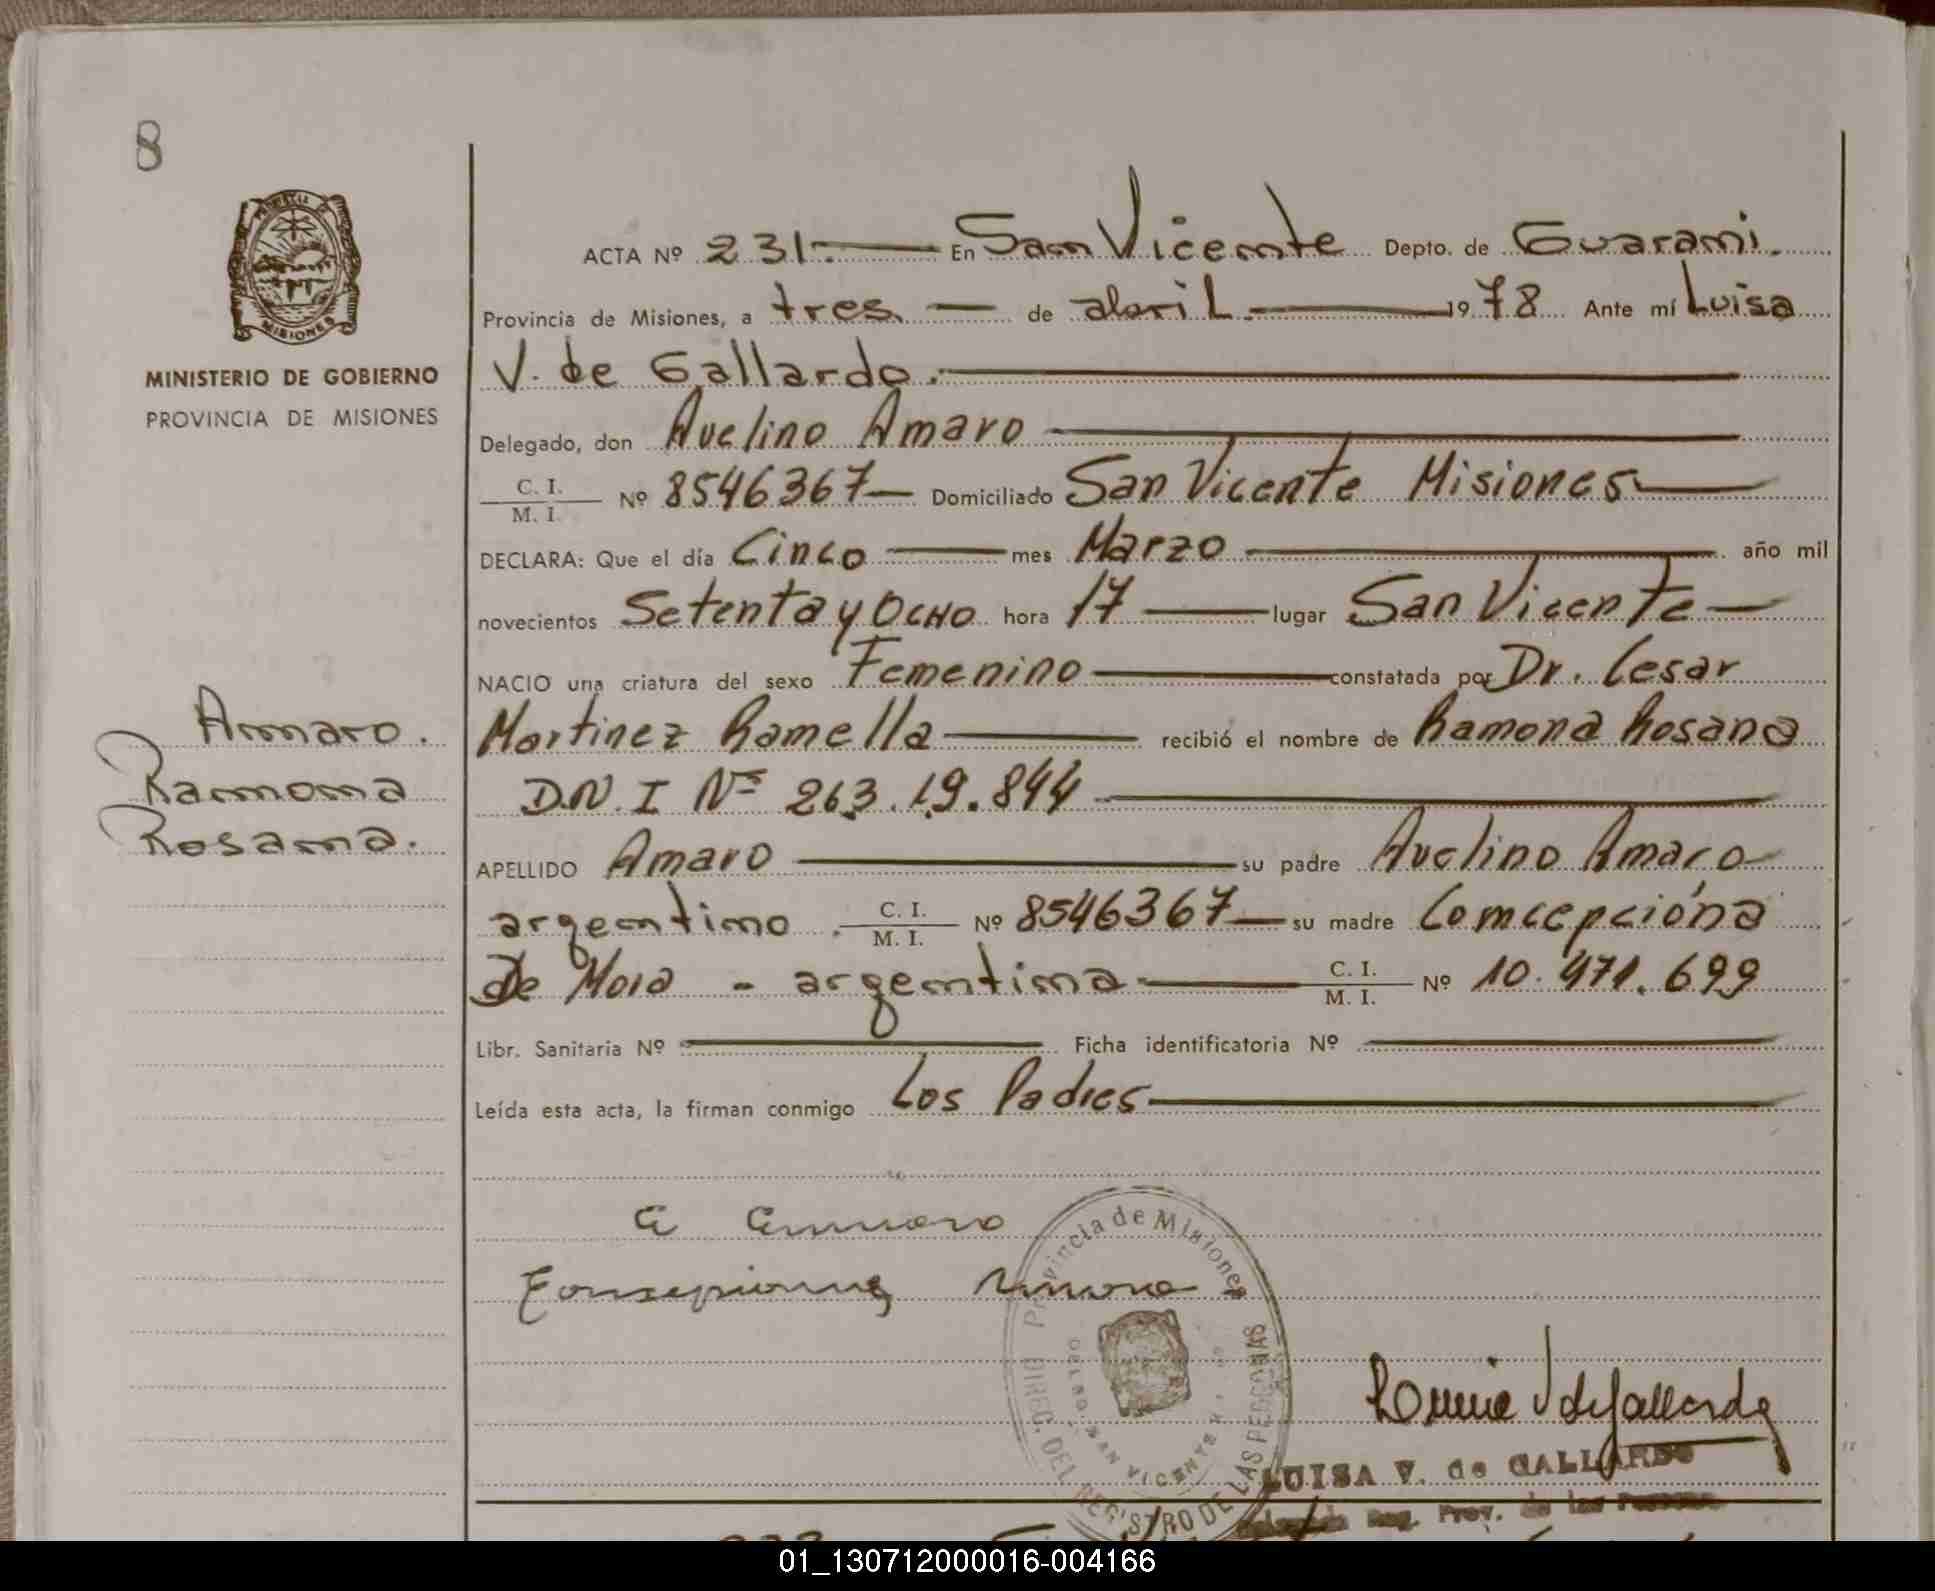 8
PROVINCIA DE
MISIONES
MINISTERIO DE GOBIERNO
PROVINCIA DE MISIONES
ACTA Nº 231. En San Vicente Depto. de Guarani.
Provincia de Misiones, a tres de abril 1978 Ante mí Luisa
V. de Gallardo.
Delegado, don Avelino Amaro
C. I.
M. I. Nº 8546367 Domiciliado San Vicente Misiones
DECLARA: Que el día Cinco mes Marzo año mil
novecientos Setenta y Ocho hora 17 lugar San Vicente
NACIO una criatura del sexo Femenino constatada por Dr. Cesar
Martinez Ramella recibió el nombre de Ramona Rosana
D.N.I Nº 263.19.844
APELLIDO Amaro su padre Avelino Amaro
argentino. C. I.
M. I. Nº 8546367 su madre Comcepcióna
De Mora - argentina C. I.
M. I. Nº 10.471.699
Libr. Sanitaria Nº Ficha identificatoria Nº
Leída esta acta, la firman conmigo Los Padres
Amaro.
Ramona
Rosana.
Provincia de Misiones
DIREC. DEL REGISTRO DE LAS PERSONAS
SAN VICENTE
LUISA V. de GALLARDO
Reg. Prov. de las Personas
01_130712000016-004166